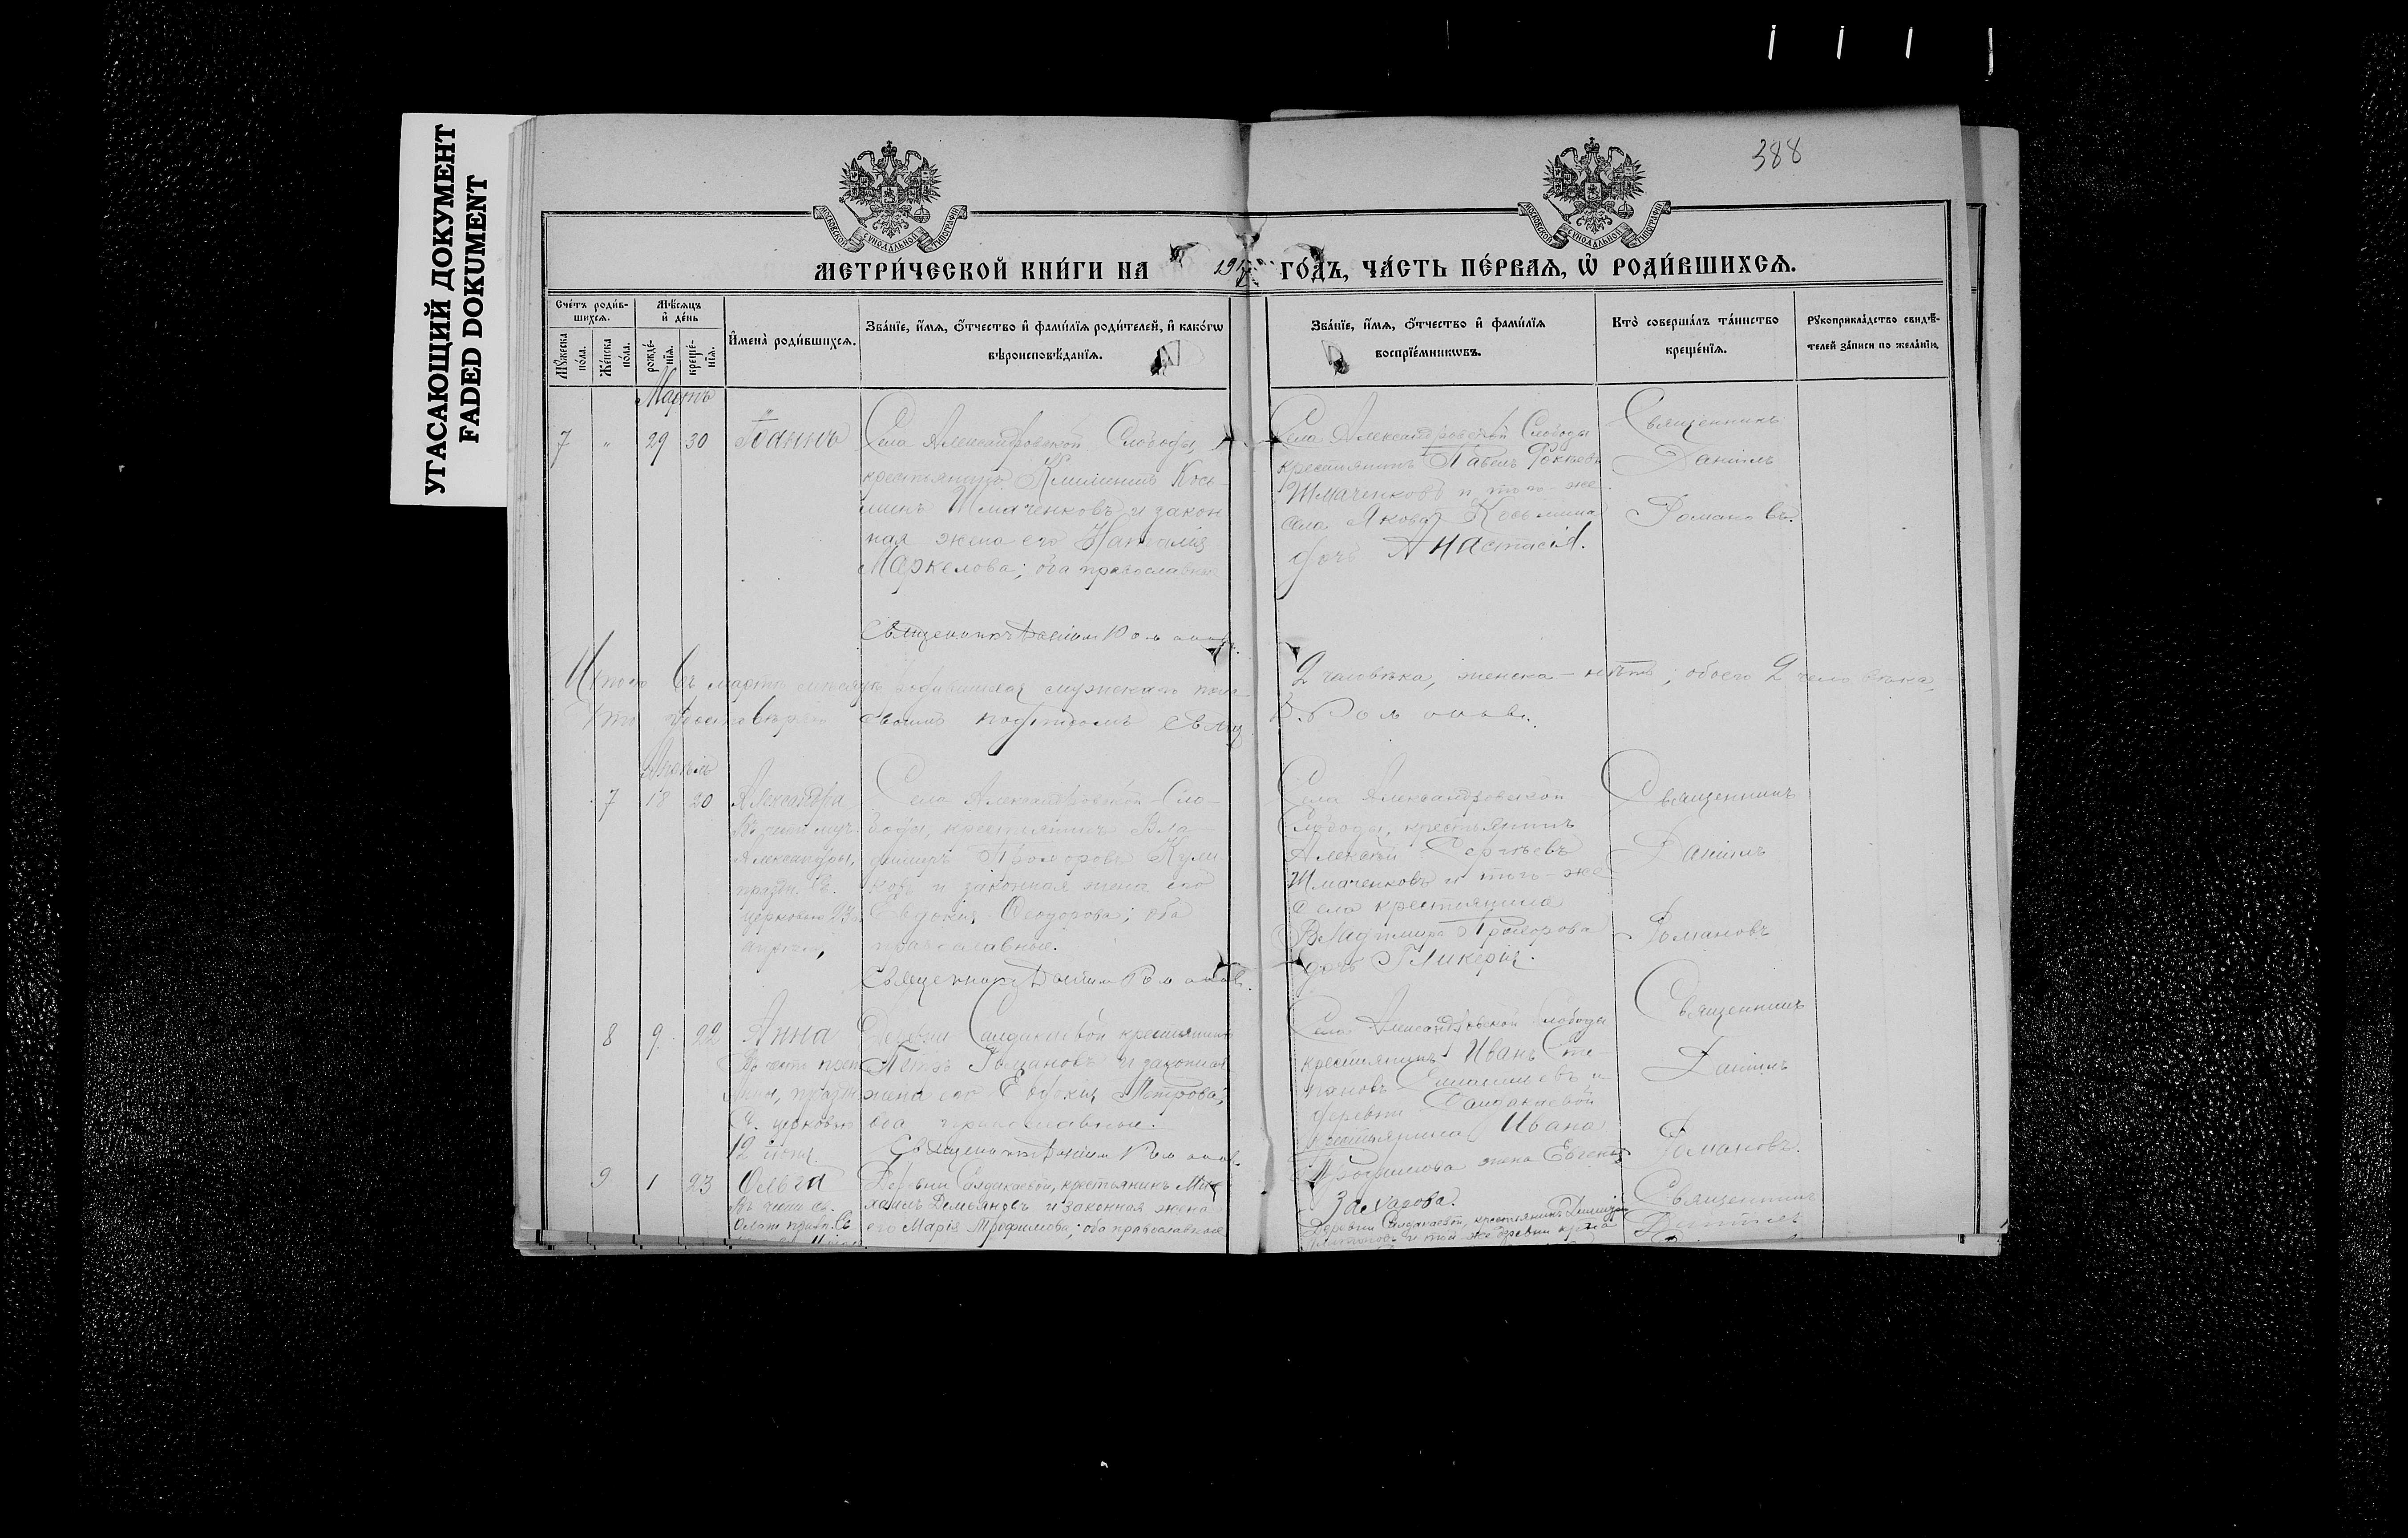 УГАСАЮЩИЙ ДОКУМЕНТ
FADED DOKUMENT
388
МОСКОВСКОЙ СУНОДАЛЬНОЙ ТИПОГРАФІИ
МОСКОВСКОЙ СУНОДАЛЬНОЙ ТИПОГРАФІИ
МЕТРИ́ЧЕСКОЙ КНИ́ГИ НА 191 ГО́ДЪ, ЧА́СТЬ ПЕ́РВАѦ, Ѡ РОДИ́ВШИХСѦ.
Сче́тъ роди́в-
шихсѧ.
Мꙋжеска
по́ла.
Же́нска
по́ла.
Мѣ́сѧцъ
и҆ де́нь
рожде́-
нїѧ.
креще́-
нїѧ.
И҆мена̀ роди́вшихсѧ.
Зва́нїе, и҆́мѧ, ѻ҆́тчество и҆ фами́лїѧ роди́телей, и҆ како́гѡ
вѣроисповѣ́данїѧ.
Зва́нїе, и҆́мѧ, ѻ҆́тчество и҆ фами́лїѧ
воспрїе́мникѡвъ.
Кто̀ соверша́лъ та́инство
креще́нїѧ.
Рꙋкоприкла́дство свидѣ́-
телей за́писи по жела́нїю.
Мартъ
7 " 29 30 Іоаннъ
Села Александровской Слободы,
крестьянинъ Климентъ Кось-
минъ Шмаченковъ и закон
ная жена его Наталія
Маркелова; оба православные
Священникъ Даніил Романовъ.
Села Александровской Слободы
крестьянинъ Павелъ Фокѣевъ
Шмаченковъ и того-же
села Якова Косьмина
дочь Анастасія.
Священникъ
Даніилъ
Романовъ.
Итого въ мартѣ мѣсяцѣ родившихся мужеска пола 2 человѣка, женска - нѣтъ; обоего 2 человѣка,
что удостовѣряю своимъ подписомъ Свящ. Д. Романовъ.
Апрѣль
7 18 20 Александра
Въ честь муч.
Александры,
праздн. Св.
церковью 23
апрѣля,
Села Александровской Сло-
боды, крестьянинъ Вла-
димиръ Прохоровъ Кули
ковъ и законная жена его
Евдокія Ѳеодорова; оба
православные.
Священникъ Даніил Романовъ.
Села Александровской
Слободы, крестьянинъ
Алексѣй Сергѣевъ
Шмаченковъ и того-же
села крестьянина
Владимира Прохорова
дочь Гликерія.
Священникъ
Даніилъ
Романовъ
8 9 22 Анна
Въ честь преп.
Анны, праздн.
Св. церковью
12 іюня
Деревни Салдакаевой крестьянинъ
Петръ Романовъ и законная
жена его Евдокія Петрова;
оба православные.
Священникъ Даніил Романовъ.
Села Александровской Слободы
крестьянинъ Иванъ Сте-
пановъ и
деревни Салдакаевой
крестьянина Ивана
Трофимова жена Евгенія
Захарова.
Священникъ
Даніилъ
Романовъ.
9 1 23 Ольга
Въ честь св.
Ольги празд. Св.
Деревни Салдакаевой, крестьянинъ Ми-
хаилъ Демьяновъ и законная жена
его Марія Трофимова; оба православные
Деревни Салдакаевой, крестьянинъ
и той-же деревни
Священникъ
Даніилъ